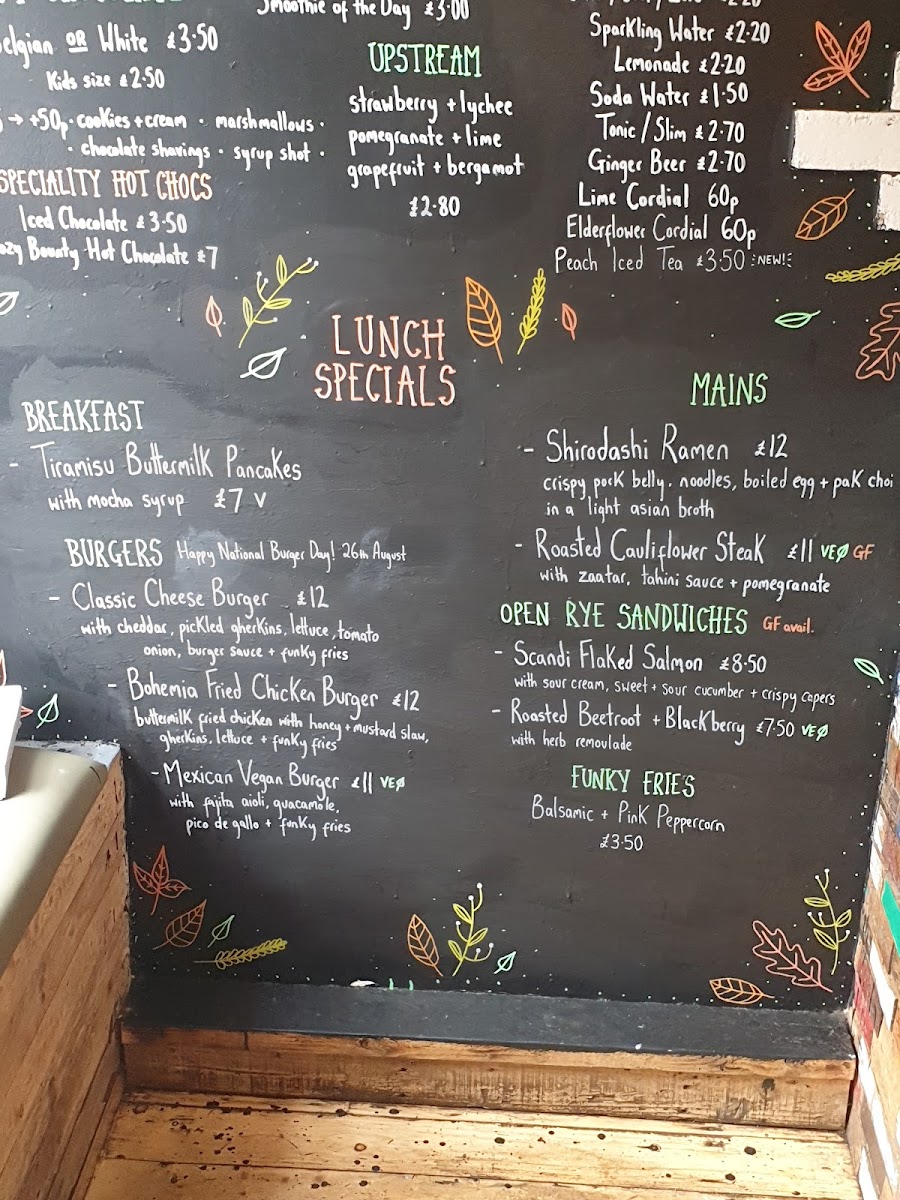 or White £3.50
Kids size £2.50
+50p · cookies + cream · marshmallows ·
· chocolate shavings · syrup shot ·
SPECIALITY HOT CHOCS
Iced Chocolate £3.50
Bounty Hot Chocolate £7
Smoothie of the Day £3.00
UPSTREAM
strawberry + lychee
pomegranate + lime
grapefruit + bergamot
£2.80
Sparkling Water £2.20
Lemonade £2.20
Soda Water £1.50
Tonic / Slim £2.70
Ginger Beer £2.70
Lime Cordial 60p
Elderflower Cordial 60p
Peach Iced Tea £3.50 NEW!
LUNCH
SPECIALS
BREAKFAST
- Tiramisu Buttermilk Pancakes
with mocha syrup £7 V
BURGERS Happy National Burger Day! 26th August
- Classic Cheese Burger £12
with cheddar, pickled gherkins, lettuce, tomato
onion, burger sauce + funky fries
- Bohemia Fried Chicken Burger £12
buttermilk fried chicken with honey + mustard slaw,
gherkins, lettuce + funky fries
- Mexican Vegan Burger £11 VEØ
with fajita aioli, guacamole,
pico de gallo + funky fries
MAINS
- Shirodashi Ramen £12
crispy pork belly. noodles, boiled egg + pak choi
in a light asian broth
- Roasted Cauliflower Steak £11 VEØ GF
with zaatar, tahini sauce + pomegranate
OPEN RYE SANDWICHES GF avail.
- Scandi Flaked Salmon £8.50
with sour cream, sweet + sour cucumber + crispy capers
- Roasted Beetroot + Blackberry £7.50 VEØ
with herb remoulade
FUNKY FRIES
Balsamic + Pink Peppercorn
£3.50